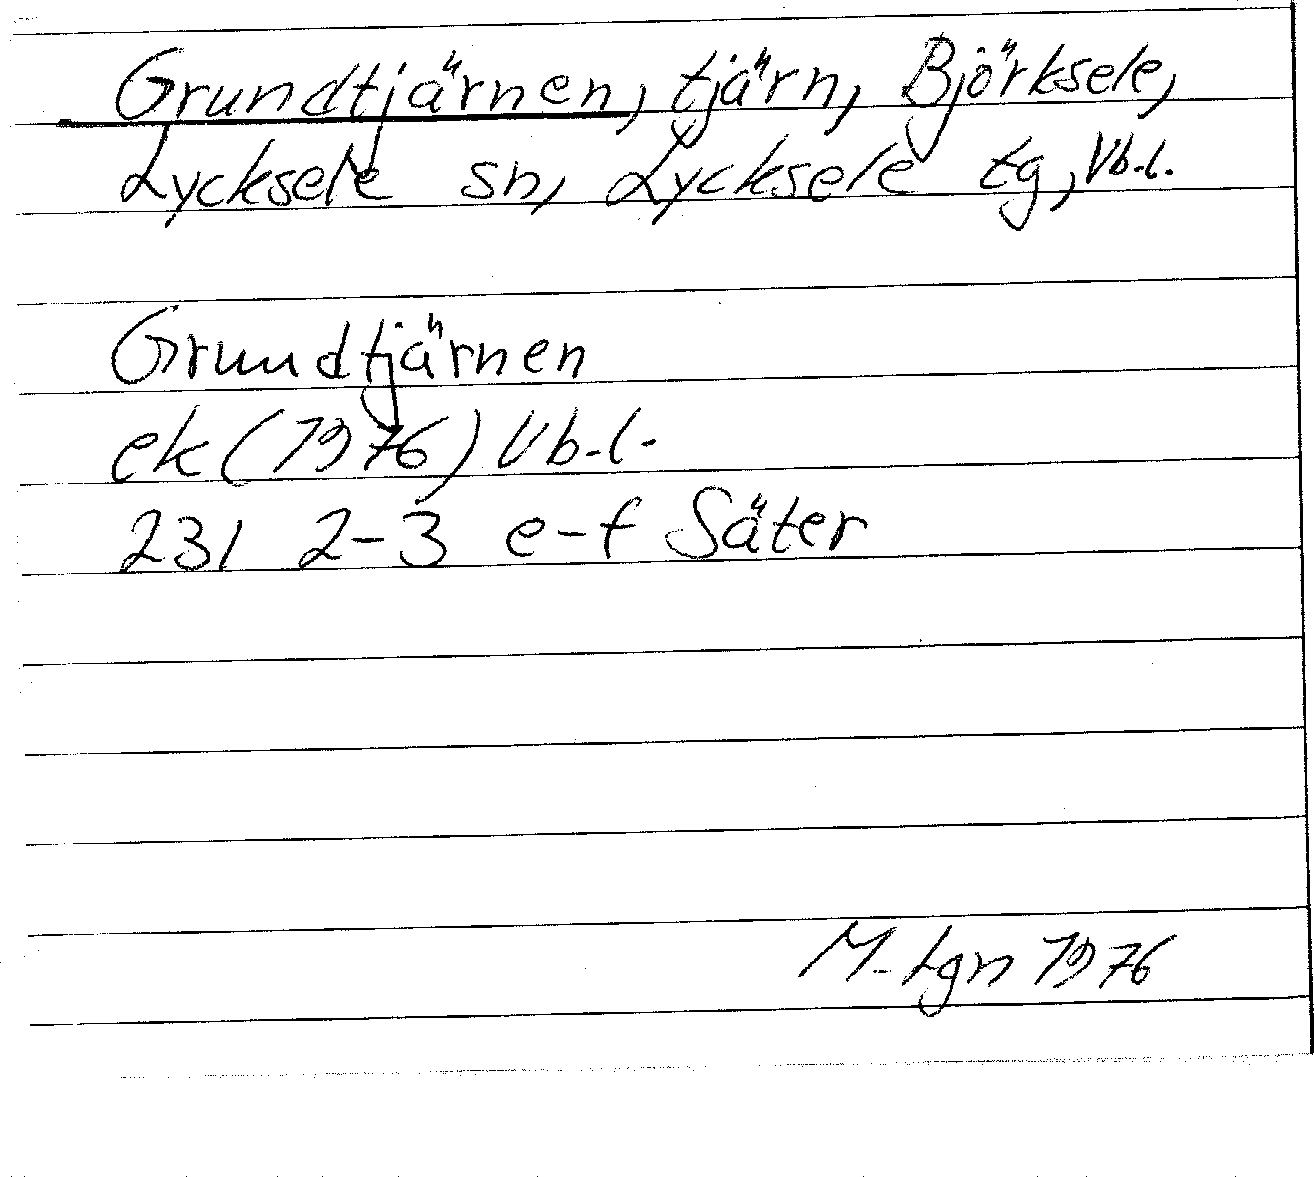 Grundtjärnen, tjärn, Björksele,
Lycksele sn, Lycksele tg, Vb.l.
Grundtjärnen
ek (1976) Vb.l.
231 2-3 e-f Säter
M-Lgn 1976